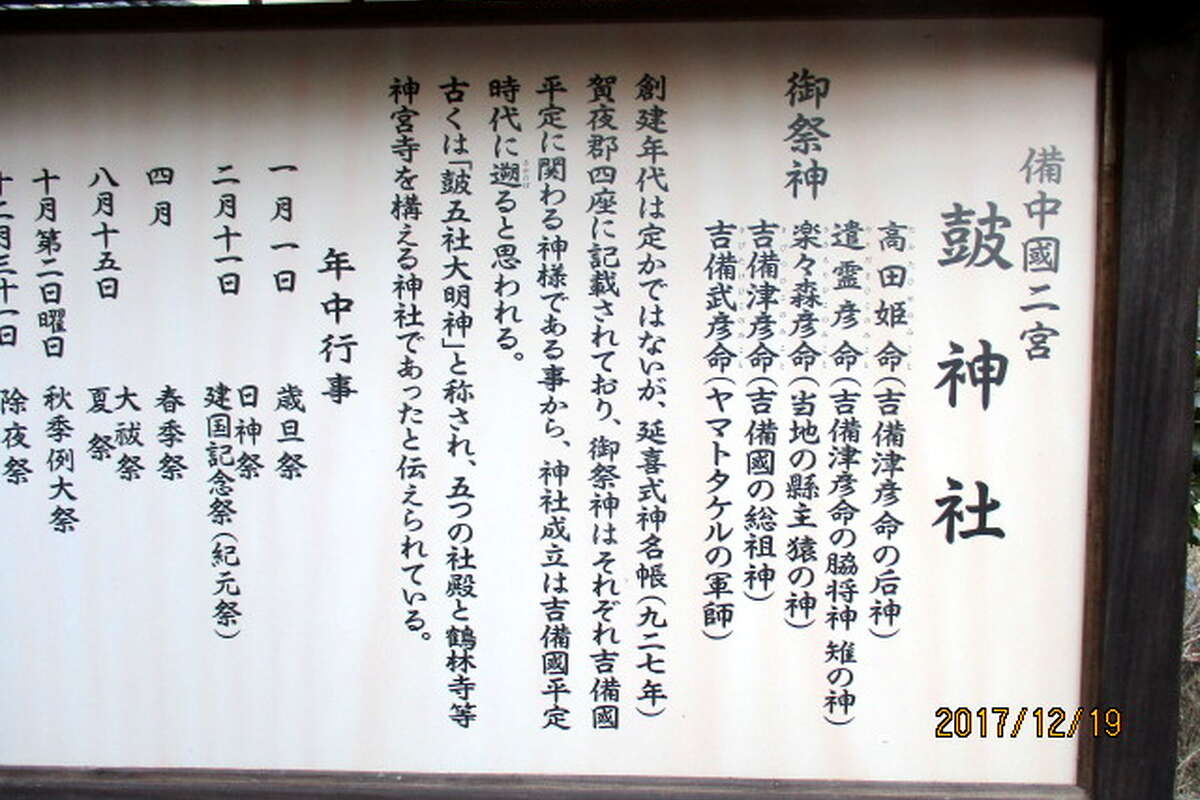 備中國二宮
鼓神社
御祭神
高田姫命(吉備津彦命の后神)
遣霊彦命(吉備津彦命の脇将神 雉の神)
楽々森彦命(当地の縣主猿の神)
吉備津彦命(吉備國の総祖神)
吉備武彦命(ヤマトタケルの軍師)
創建年代は定かではないが、延喜式神名帳(九二七年)
賀夜郡四座に記載されており、御祭神はそれぞれ吉備國
平定に関わる神様である事から、神社成立は吉備國平定
時代に遡ると思われる。
古くは「鼓五社大明神」と称され、五つの社殿と鶴林寺等
神宮寺を構える神社であったと伝えられている。
年中行事
一月一日 歳旦祭
日神祭
二月十一日 建国記念祭(紀元祭)
四月 春季祭
大祓祭
八月十五日 夏祭
十月第二日曜日 秋季例大祭
十二月三十一日 除夜祭
2017/12/19